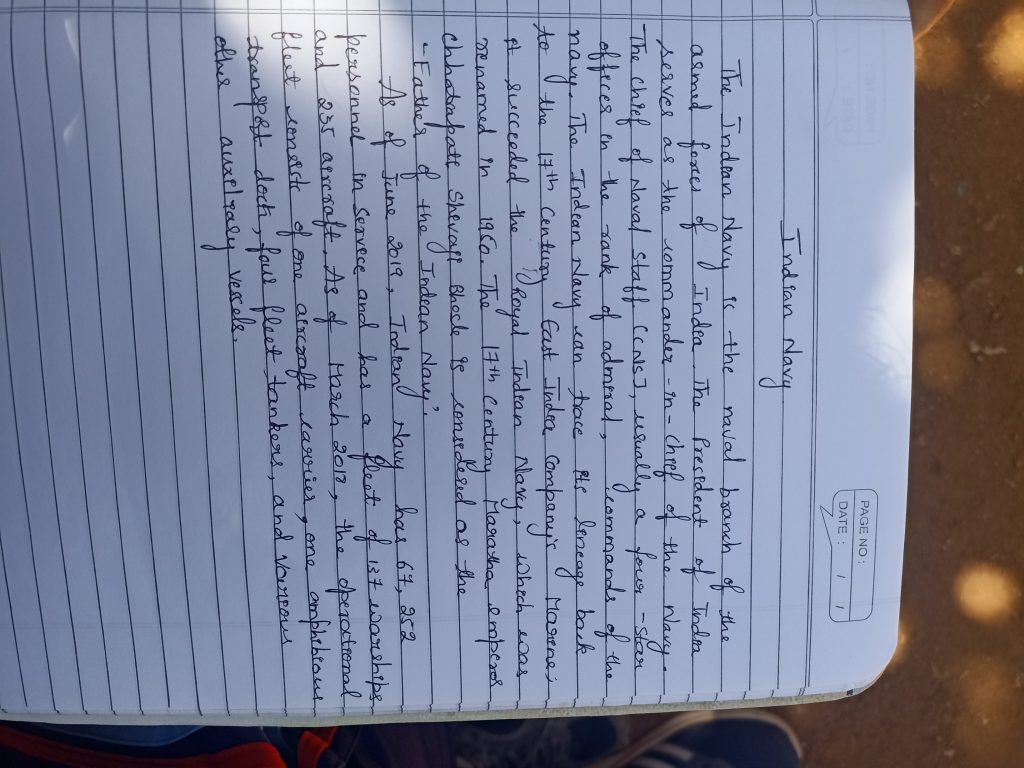 PAGE NO:
DATE: / /
Indian Navy
The Indian Navy is the naval branch of the
armed forces of India. The President of India
serves as the commander-in-chief of the Navy.
The chief of Naval staff [CNS], usually a four-star
officer in the rank of admiral, commands of the
navy. The Indian Navy can trace its lineage back
to the 17th Century East India Company's Marine;
it succeeded the Royal Indian Navy, which was
renamed in 1950. The 17th Century Maratha emperor
Chhatrapati Shivaji Bhosle is considered as the
"Father of the Indian Navy".
As of June 2019, Indian Navy has 67,252
personnel in service and has a fleet of 137 warships
and 235 aircraft. As of March 2018, the operational
fleet consist of one aircraft carrier, one amphibious
transport dock, four fleet tankers, and various
other auxiliary vessels.